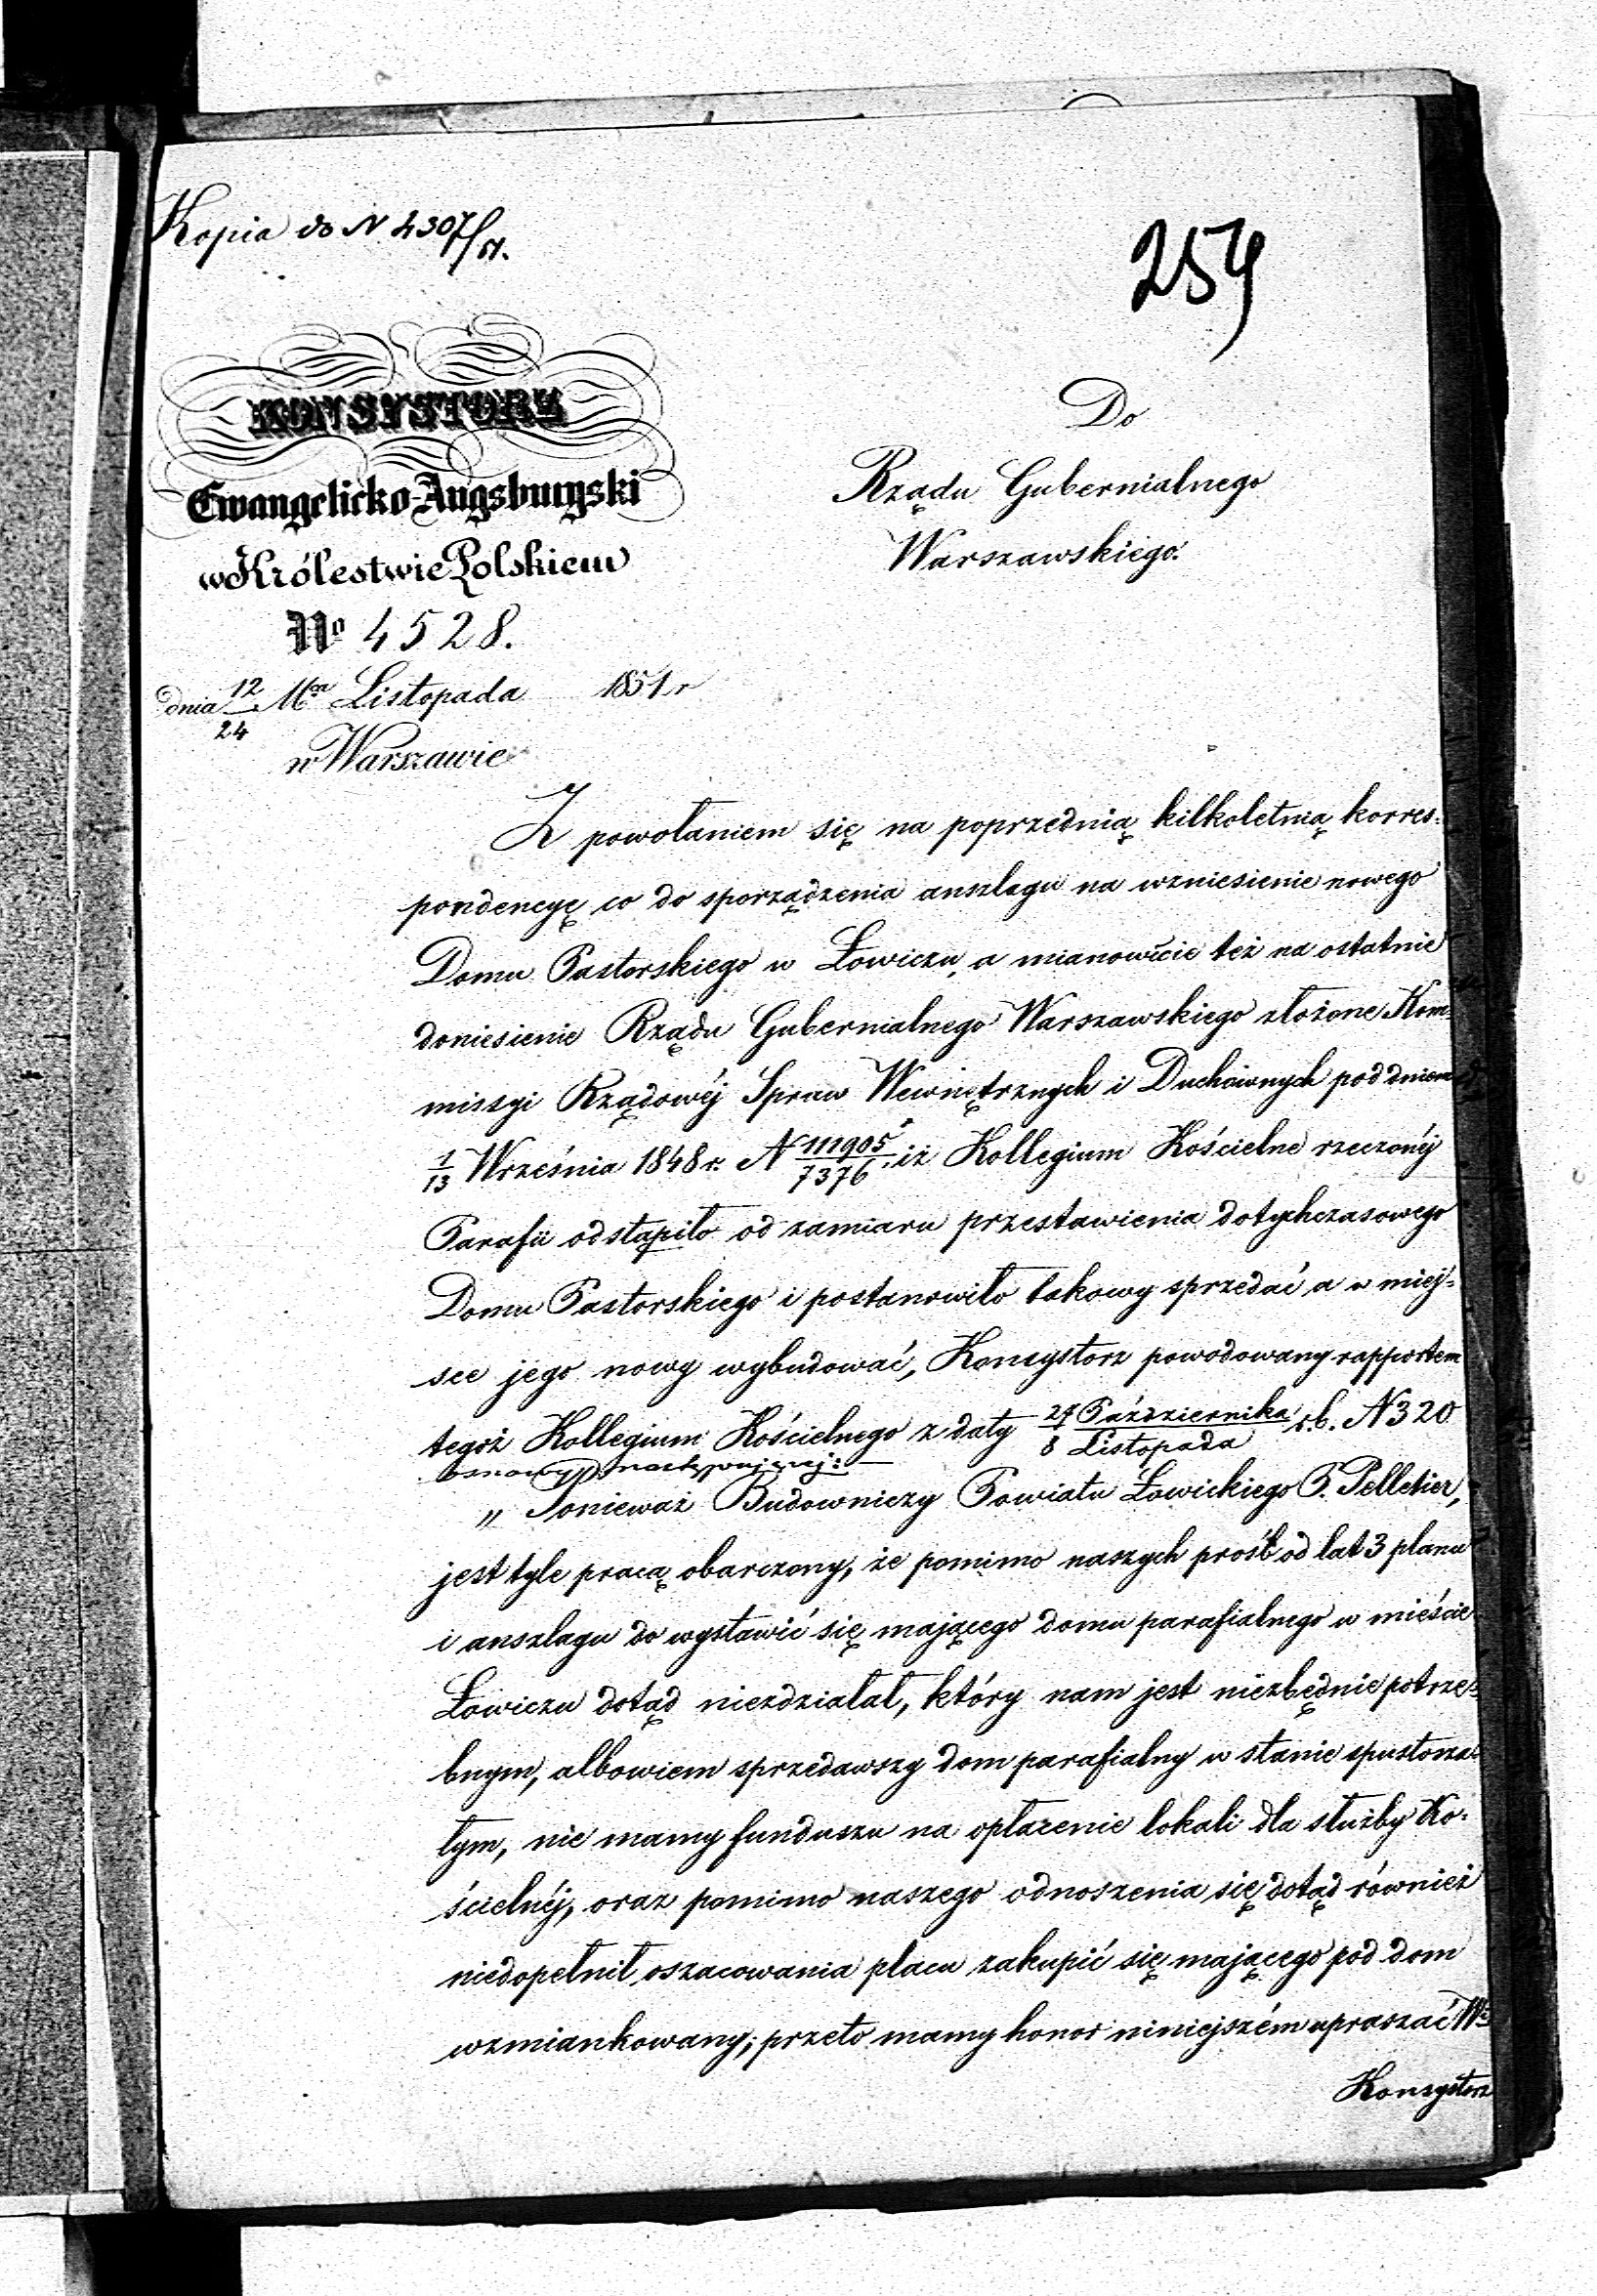 Kopia do N 4307/51.
259
KONSYSTORZ
Ewangelicko-Augsburgski
w Królestwie Polskiem
No 4528.
dnia 12/24 Mca Listopada 1851 r
w Warszawie
Do
Rządu Gubernialnego
Warszawskiego.
Z powołaniem się na poprzednią kilkoletnią korres-
pondencyę co do sporządzenia anszlagu na wzniesienie nowego
Domu Pastorskiego w Łowiczu, a mianowicie też na ostatnie
doniesienie Rządu Gubernialnego Warszawskiego złożone Kom-
missyi Rządowéj Spraw Wewnętrznych i Duchownych pod dniem
1/13 Września 1848 r. N 111905/7376, iż Kollegium Kościelne rzeczonéj
Parafii odstąpiło od zamiaru przestawienia dotychczasowego
Domu Pastorskiego i postanowiło takowy sprzedać a w miej-
sce jego nowy wybudować, Konsystorz powodowany rapportem
tegoż Kollegium Kościelnego z daty 27 Października/8 Listopada r.b. N 320
osnowy następującéj:
„Ponieważ Budowniczy Powiatu Łowickiego P. Pelletier,
jest tyle pracą obarczony, że pomimo naszych prośb od lat 3 planu
i anszlagu do wystawić się mającego domu parafialnego w mieście
Łowiczu dotąd niezdziałał, który nam jest niezbędnie potrze-
bnym, albowiem sprzedawszy dom parafialny w stanie spustosza-
łym, nie mamy funduszu na opłazenie lokali dla służby Ko-
ścielnéj, oraz pomimo naszego odnoszenia się dotąd również
niedopełnił oszacowania placu zakupić się mającego pod dom
wzmiankowany; przeto mamy honor niniejszém upraszać
Konsystorz